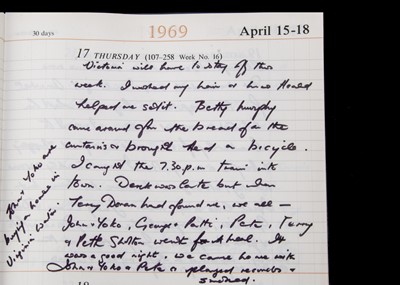 30 days
1969
April 15-18
17 THURSDAY (107-258 Week No. 16)
Victoria will have to stay off this
week. I washed my hair &
helped me set it. Betty Murphy
came around for the
curtains & brought a bicycle.
I caught the 7.30 p.m. train into
town. Derek was late but when
Terry Doran had found me, we all —
John & Yoko, George & Patti, Pete, Terry
& Pete Shotton went for a meal. It
was a good night. We came home with
John & Yoko & Pete & played records &
smoked.
John & Yoko are
buying a house in
Virginia Water.
18